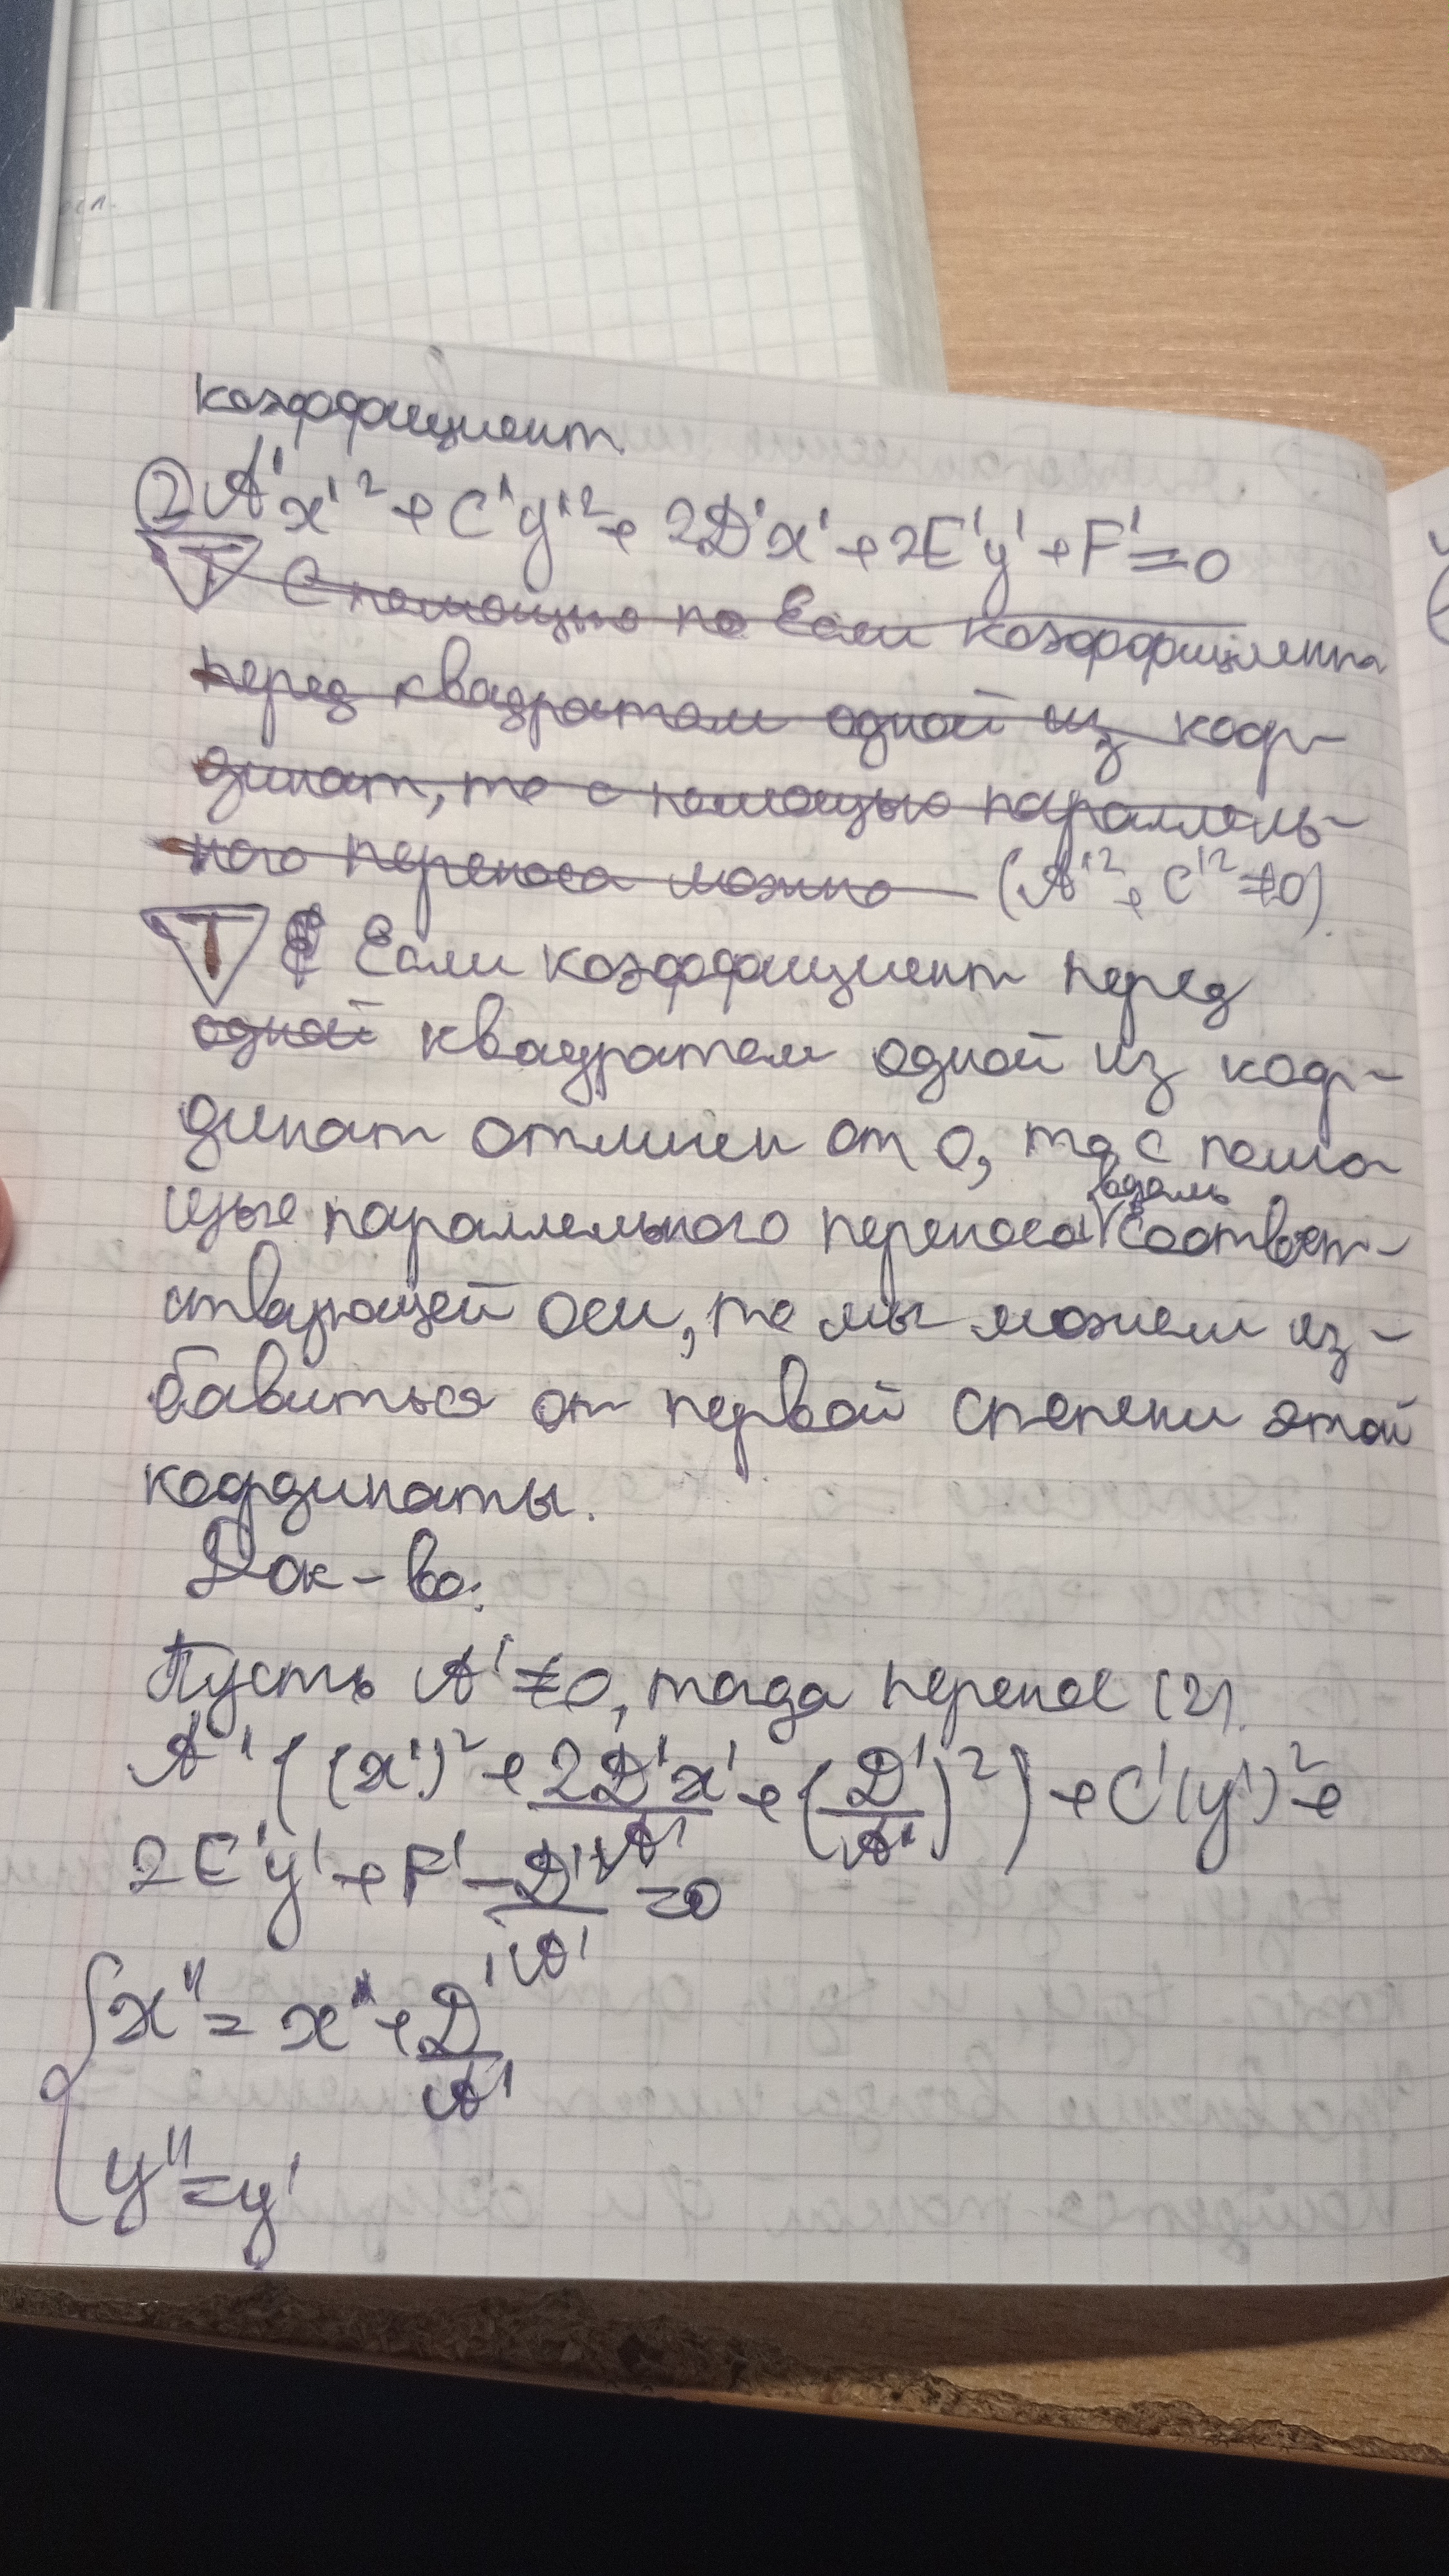 коэффициент
② A'x'² + C'y'² + 2D'x' + 2E'y' + F' = 0
T С помощью по Если коэффициента
перед квадратом одной из коор-
динат, то с помощью параллель-
ного переноса можно (A'² + C'² ≠ 0).
T Если коэффициент перед
одной квадратом одной из коор-
динат отличен от 0, то с помо
щью параллельного переноса вдоль соответ-
ствующей оси, то мы можем из-
бавиться от первой степени этой
координаты.
Док-во:
Пусть A' ≠ 0, тогда (2).
A'((x')² + 2D'x'/A' + (D'/A')²) + C'(y')² +
2E'y' + F' - D'²/A' = 0
{ x'' = x' + D'/A'
y'' = y'